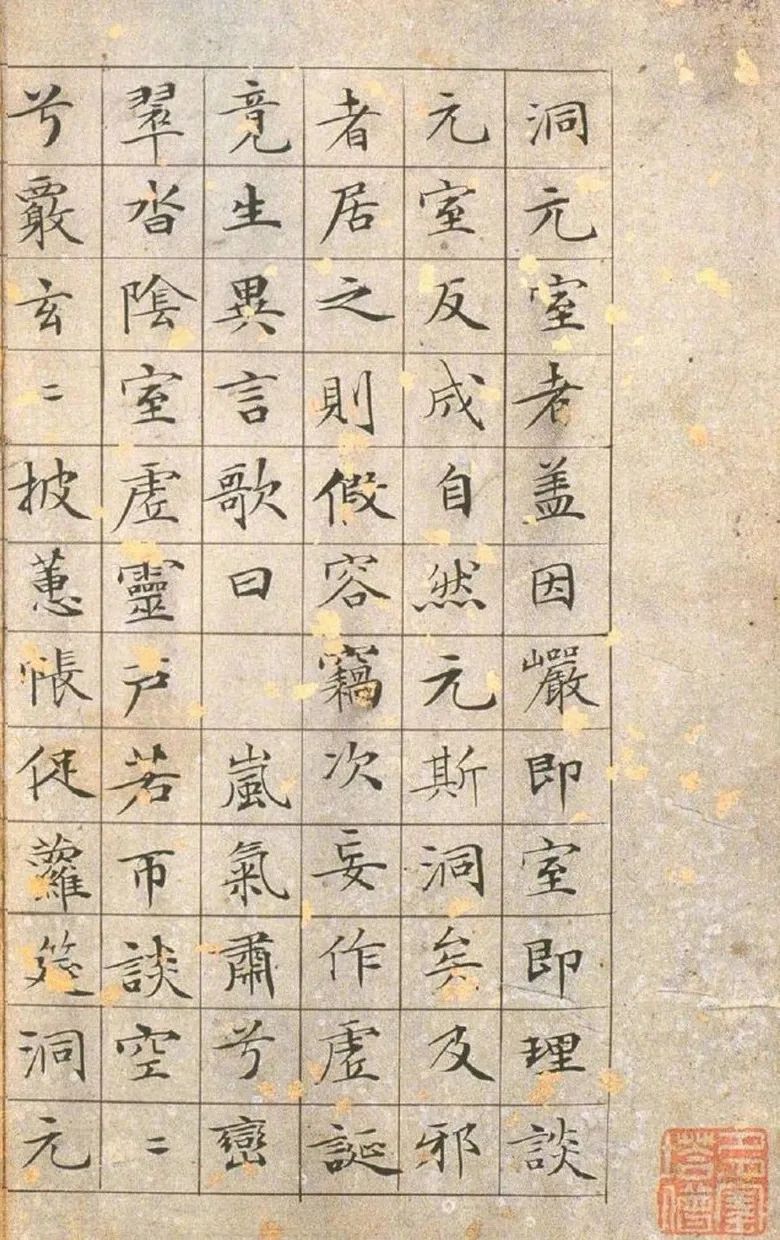 洞元室者盖因巖即室即理談
元室反成自然元斯洞矣及邪
者居之則假容竊次妄作虛誕
竟生異言歌曰 嵐氣肅兮巒
翠沓陰室虛靈户若帀談空〻
兮覈玄〻披蕙帳促蘿筵洞元